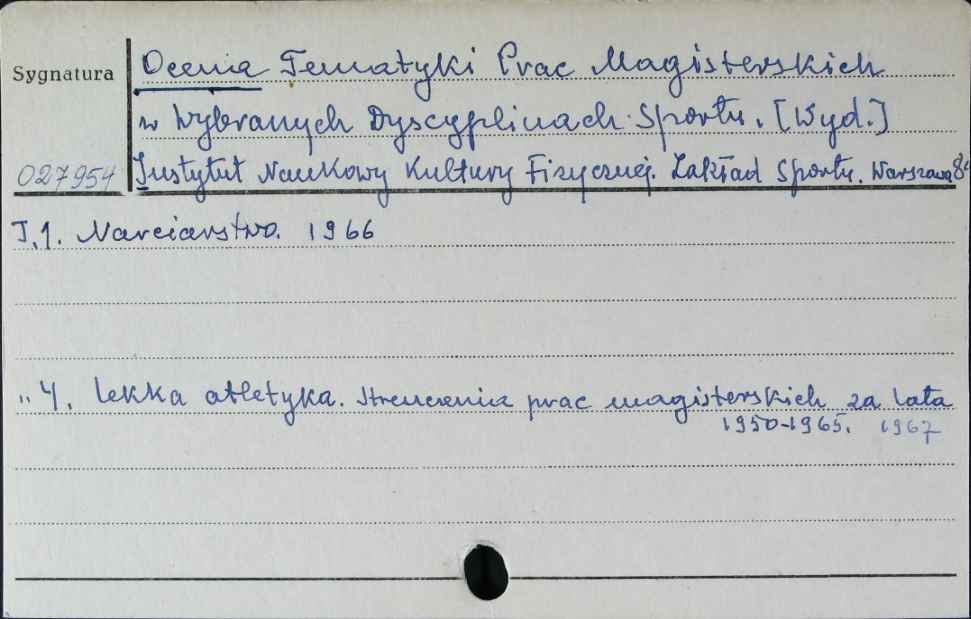 Ocena Tematyki Prac Magisterskich
Sygnatura
w Wybranych Dyscyplinach Sportu. [Wyd.]
027954 Instytut Naukowy Kultury Fizycznej. Zakład Sportu. Warszawa 8°
T.1. Narciarstwo. 1966
„ 4. Lekka atletyka. Streszczenia prac magisterskich za lata
1950-1965. 1967